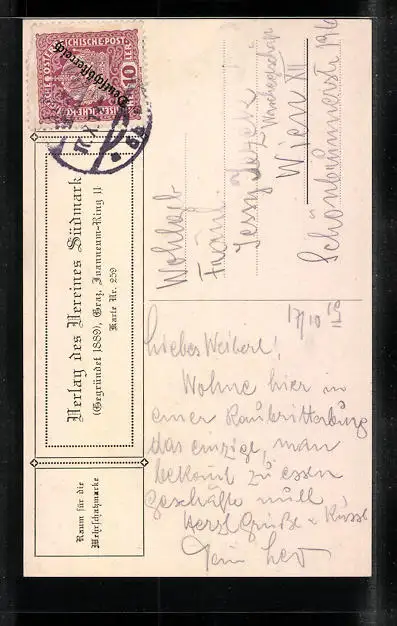 ÖSTERREICHISCHE·POST
10
HELLER
Deutschösterreich
Verlag des Vereines Südmark
(Gegründet 1889), Graz, Joanneum-Ring 11
Karte Nr. 259
Raum für die
Wehrschatzmarke
Wohlgeb
Fräul.
Jessy
Wien XII
Schönbrunnerstr
17/10 19
Liebes Weiberl!
Wohne hier in
einer Raubritterburg
das einzige, man
bekomt zu essen
Geschäfte null,
Herzl Grüße u Küsse
Dein Leo